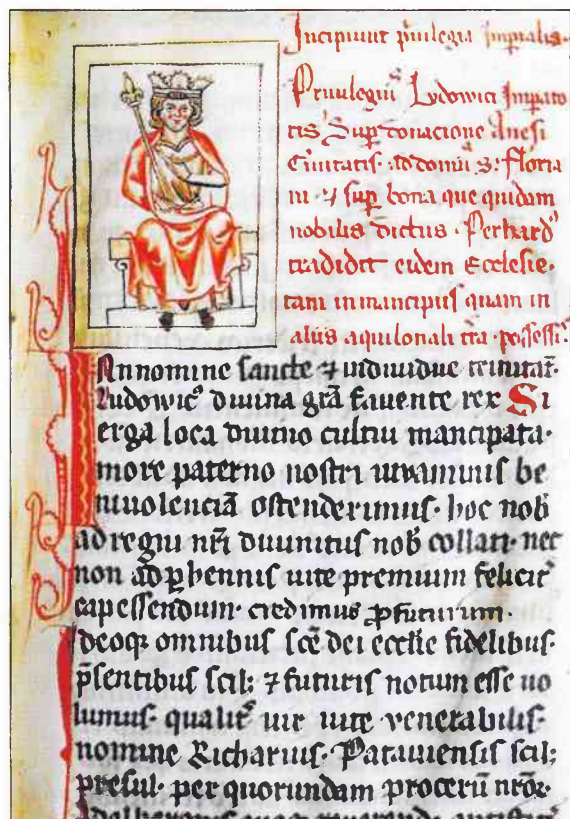 Incipiunt p̾uilegia Imp̾ialia·
Priuilegiū Lvdowici Impato
ris Sup̱ donacione Anesi
Ciuitatis· ad domū S: Floria
ni· ⁊ sup̱ bona que quidam
nobilis dictus· Perhard᷒
tradidit eidem Ecclesie·
tam in mancipiis quam in
aliis aquilonali t̾ra· possessi᷒·
Innomine sancte ⁊ indiuidue trinitat᷒·
Ludowic᷒ diuina gr̄a fauente rex Si
erga loca diuino cultui mancipata·
more paterno nostri iuuaminis be
niuolenciā ostenderimus· hoc nob̄
ad regni nr̄i diuinitus nob̄ collati· nec
non ad ꝑhennis uite premium felicit᷒
capessendum· credimus ꝓfuturum·
Ideoqꝫ omnibus sc̄e dei eccl̄ie fidelibus·
p̄sentibus scil; ⁊ futuris notum esse uo
lumus· qualit᷒ uir uite venerabilis·
nomine Richarius· Patauiensis scil;
presul· per quorundam procerū nr̄oꝝ·